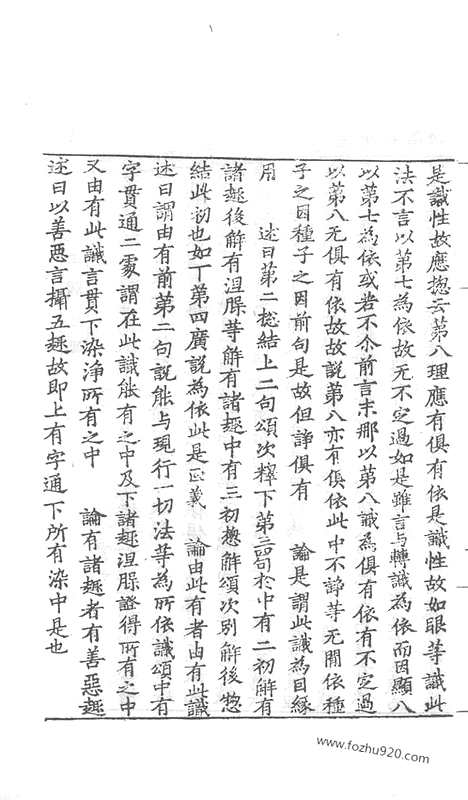 是識性故應揔云第八理應有俱有依是識性故如眼等識此
法不言以第七為依故无不定過如是雖言与轉識為依而因顯八
以第七為依或若不尒前言末那以第八識為俱有依有不定過
以第八无俱有依故故說第八亦有俱依此中不諍等无間依種
子之因種子之因前句是故但諍俱有　　論是謂此識為因緣
用　　述曰第二揔結上二句頌次釋下第三四句於中有二初解有
諸趣後解有涅槃等解有諸趣中有三初揔解頌次別解後惣
結此初也如丁第四廣説為依此是正義　論由此有者由有此識
述曰謂由有前第二句説能与現行一切法等為所依識頌中有
字貫通二處謂在此識能有之中及下諸趣涅槃證得所有之中
又由有此識言貫下染淨所有之中　　論有諸趣者有善惡趣
述曰以善惡言攝五趣故即上有字通下所有染中是也
www.fozhu920.com